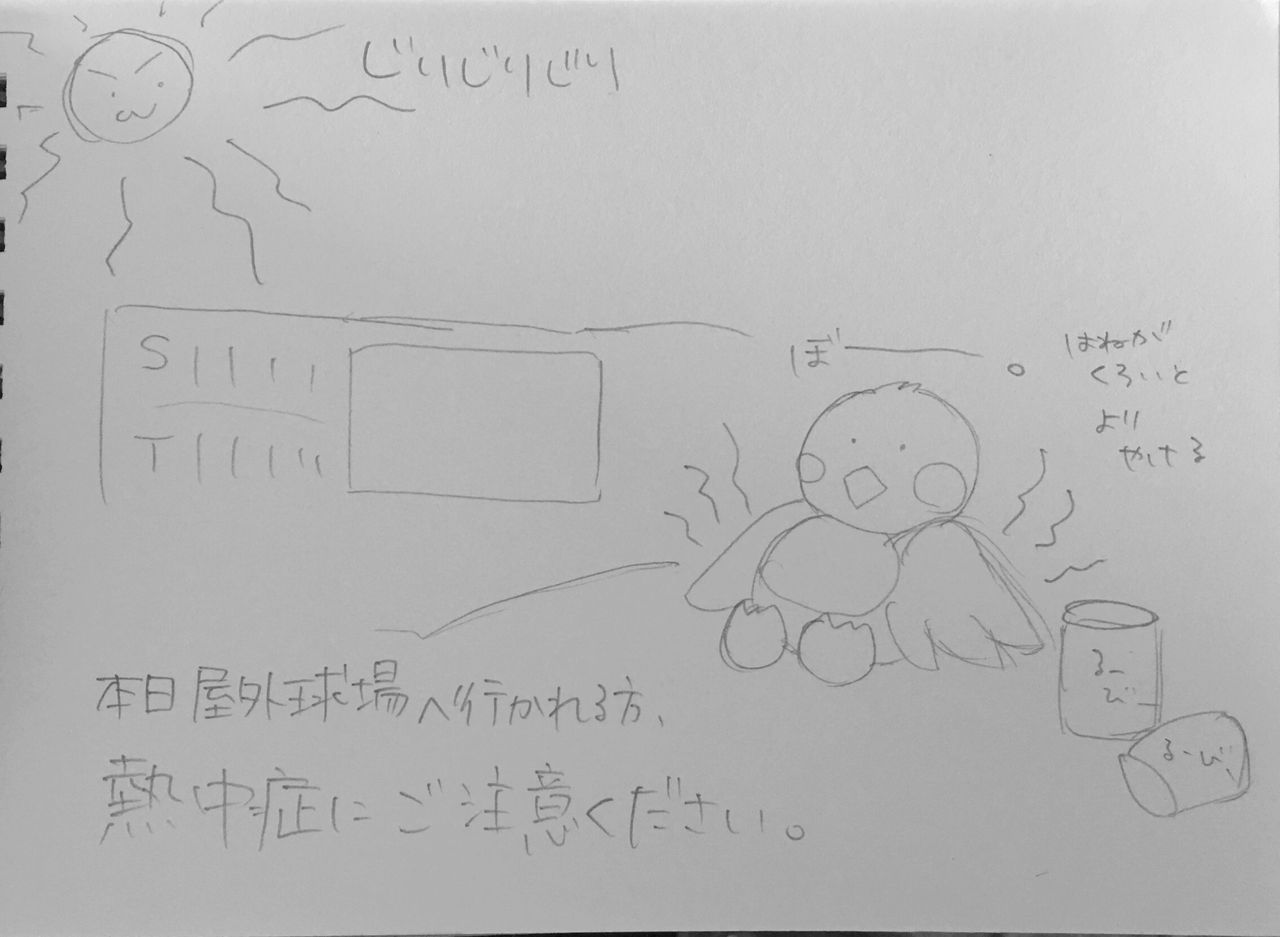 じりじりじり
S||||
T|||||
ぼ──。
はねが
くろいと
より
やける
るー
びー
るーび、
本日屋外球場へ行かれる方、
熱中症にご注意ください。